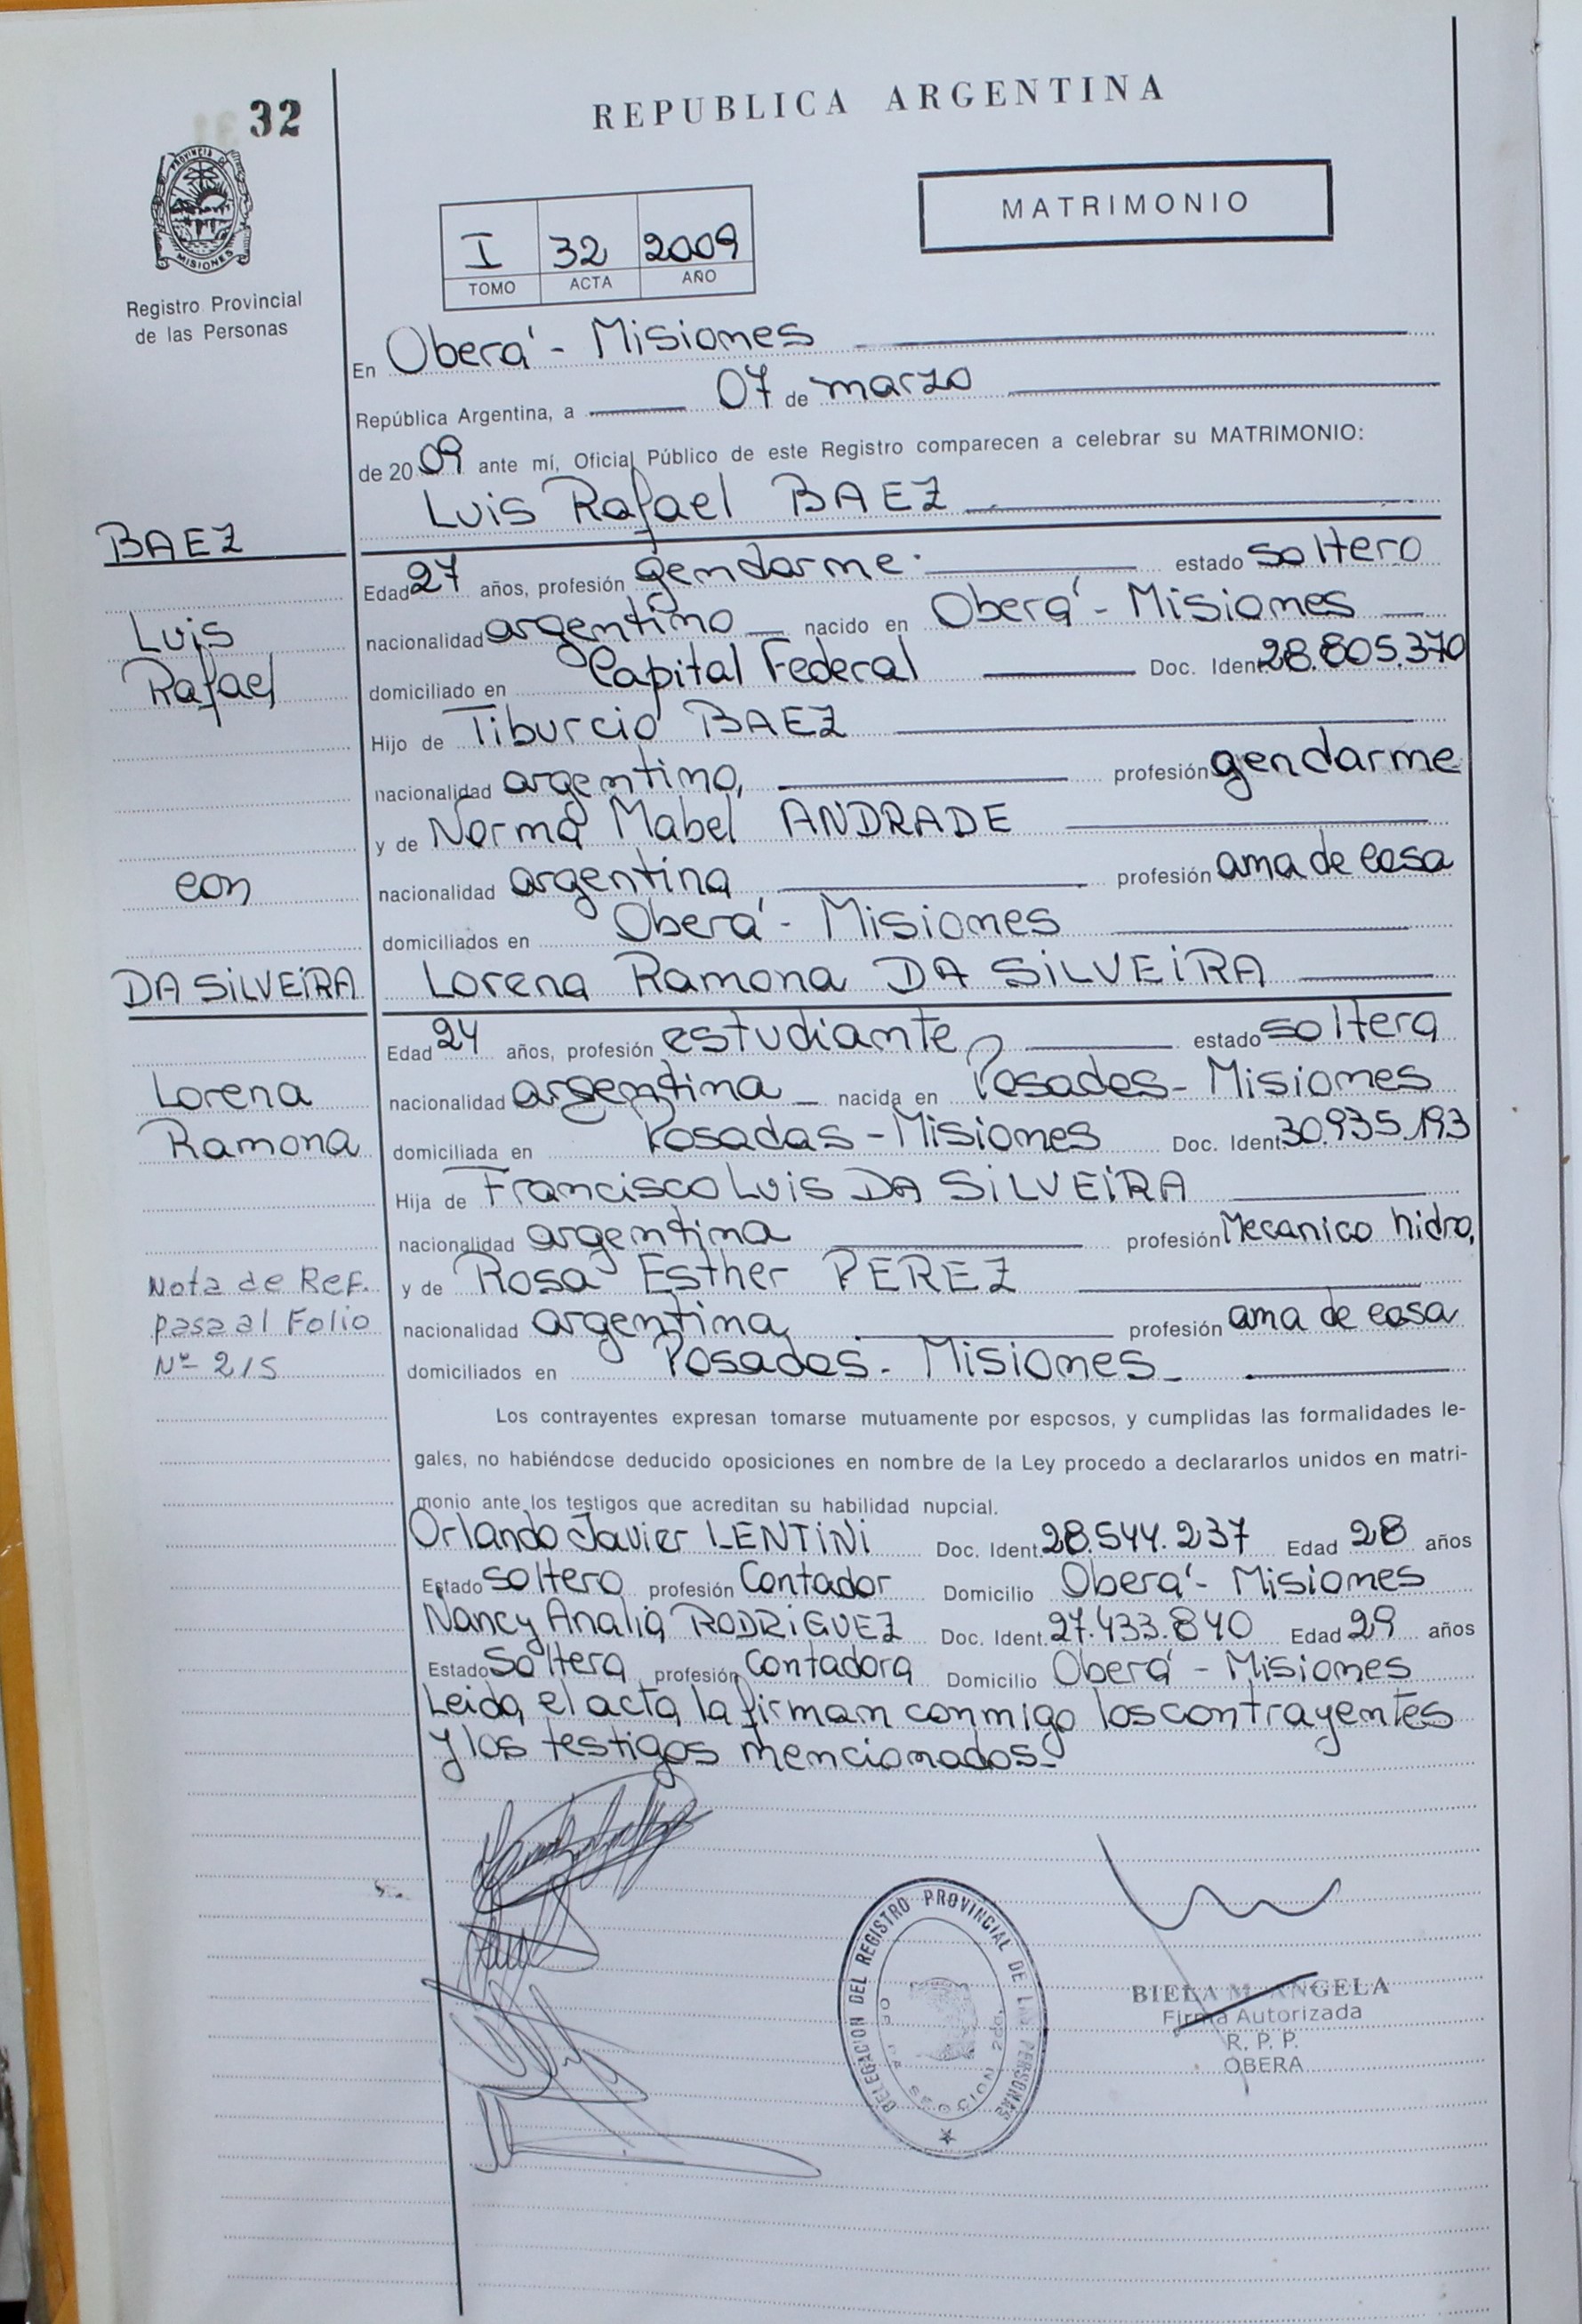 32
PROVINCIA DE
MISIONES
Registro Provincial
de las Personas
REPUBLICA ARGENTINA
MATRIMONIO
I 32 2009
TOMO ACTA AÑO
En Oberá - Misiones
República Argentina, a 07 de marzo
de 2009 ante mí, Oficial Público de este Registro comparecen a celebrar su MATRIMONIO:
Luis Rafael BAEZ
BAEZ
Edad 27 años, profesión gendarme. estado soltero
Luis
nacionalidad argentino nacido en Oberá - Misiones
Rafael
domiciliado en Capital Federal Doc. Ident. 28.805.370
Hijo de Tiburcio BAEZ
nacionalidad argentino, profesión gendarme
y de Norma Mabel ANDRADE
con
nacionalidad argentina profesión ama de casa
domiciliados en Oberá - Misiones
DA SiLVEiRA
Lorena Ramona DA SiLVEiRA
Edad 24 años, profesión estudiante estado soltera
Lorena
nacionalidad argentina nacida en Posadas - Misiones
Ramona
domiciliada en Posadas - Misiones Doc. Ident. 30.935.193
Hija de Francisco Luis DA SiLVEiRA
nacionalidad argentina profesión Mecanico hidro,
Nota de Ref.
pasa al Folio
Nº 215
y de Rosa Esther PEREZ
nacionalidad argentina profesión ama de casa
domiciliados en Posadas - Misiones
Los contrayentes expresan tomarse mutuamente por esposos, y cumplidas las formalidades le-
gales, no habiéndose deducido oposiciones en nombre de la Ley procedo a declararlos unidos en matri-
monio ante los testigos que acreditan su habilidad nupcial.
Orlando Javier LENTiNi Doc. Ident. 28.544.237 Edad 28 años
Estado soltero profesión Contador Domicilio Oberá - Misiones
Nancy Analia RODRiGUEZ Doc. Ident. 27.433.840 Edad 29 años
Estado Soltera profesión Contadora Domicilio Oberá - Misiones
Leida el acta la firman conmigo los contrayentes
y los testigos mencionados-
DELEGACION DEL REGISTRO PROVINCIAL DE LAS PERSONAS
BIELA M. ANGELA
Firma Autorizada
R. P. P.
OBERA